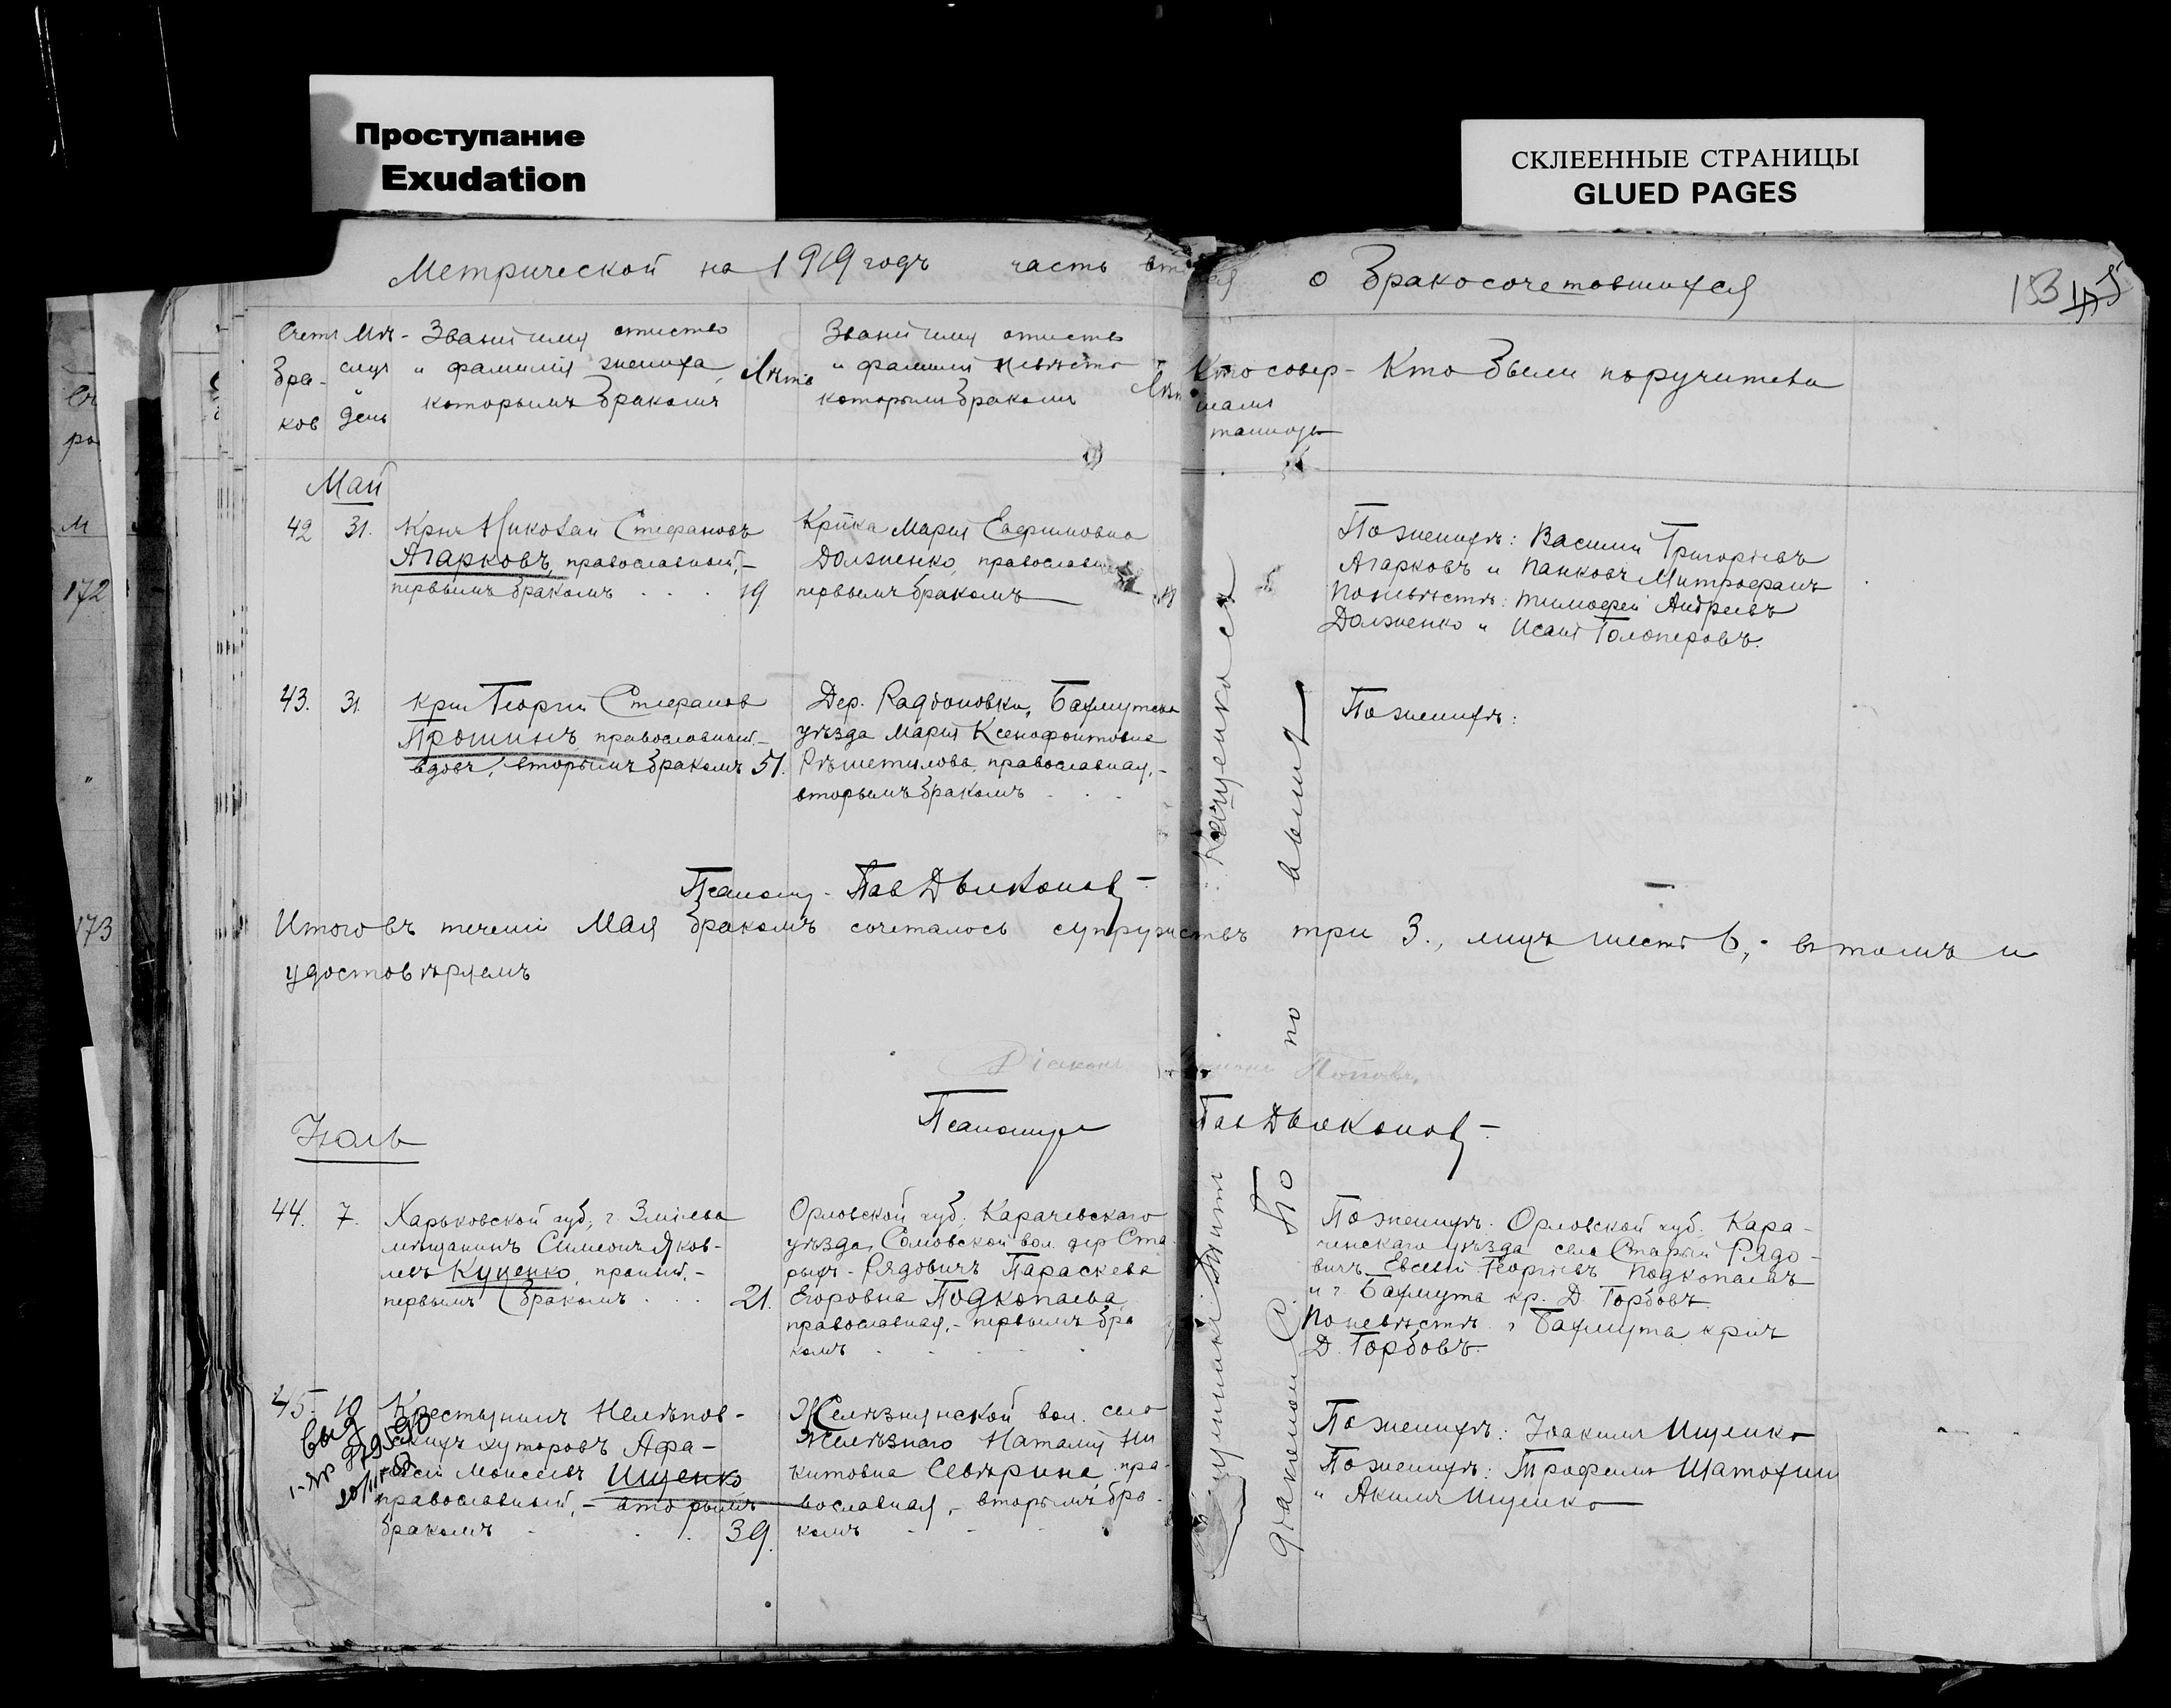 Проступание
Exudation
СКЛЕЕННЫЕ СТРАНИЦЫ
GLUED PAGES
Метрической на 1919 годъ часть о Бракосочетавшихся
153
Счетъ Бра-ков
Мѣ-сяц и день
Званіе имя отчество
и фамилія жениха
которымъ бракомъ
Лѣта
Званіе имя отчество
и фамилія невѣсты
которымъ бракомъ
Кто совер-
шалъ
Кто были поручители
Май
42 31. Крнъ Николай Стефановъ
Агарковъ, православный,-
первымъ бракомъ . . . 19
Крнка Марія Евфимовна
Долженко, православная
первымъ бракомъ
По женихѣ: Василій Григорьевъ
Агарковъ и Панковъ Митрофанъ
По невѣстѣ: Тимофей Андреевъ
Долженко и Исаія Голоперовъ.
43. 31. Крнъ Георгій Стефанов
Прошинъ, православный,-
вдовъ, вторымъ бракомъ 51.
Дер. Радіоновки, Бахмутска
уѣзда Марія Ксенофонтовна
Рѣшетилова, православная,-
вторымъ бракомъ . . .
По женихѣ:
Псаломщ. Пав Дьяконов
Итого въ теченіи Мая бракомъ сочеталось супружествъ три 3., лицъ шесть 6,- въ томъ и
удостовѣряемъ
Діаконъ Поповъ
Псаломщ Пав Дьяконов
Іюль
44. 7. Харьковской губ, г. Зміева
мѣщанинъ Симеонъ Яков-
левъ Куценко, правосл.-
первымъ бракомъ . . . 21.
Орловской губ, Карачевскаго
уѣзда, Сомовской вол. дер Ста
рыхъ-Рядовичъ Параскева
Егоровна Подкопаева
православная,- первымъ бра
комъ
По женихѣ: Орловской губ. Кара-
чевскаго уѣзда села Старый Рядо-
вичъ Евсевій Георгіевъ Подкопаевъ
и г Бахмута кр. Д. Горбовъ.
По невѣстѣ г Бахмута крнъ
Д. Горбовъ
45. 10 Крестьянинъ Нелѣпов-
скихъ хуторовъ Афа-
насій Моисеевъ Ищенко
православный,- вторымъ
бракомъ . . . 39.
Желѣзнянской вол. село
Желѣзнаго Наталія Ни
китовна Севѣрина, пра-
вославная,- вторымъ бра-
комъ
По женихѣ: Іоакимъ Ищенко
По женихѣ: Трофимъ Шатохин
и Акимъ Ищенко